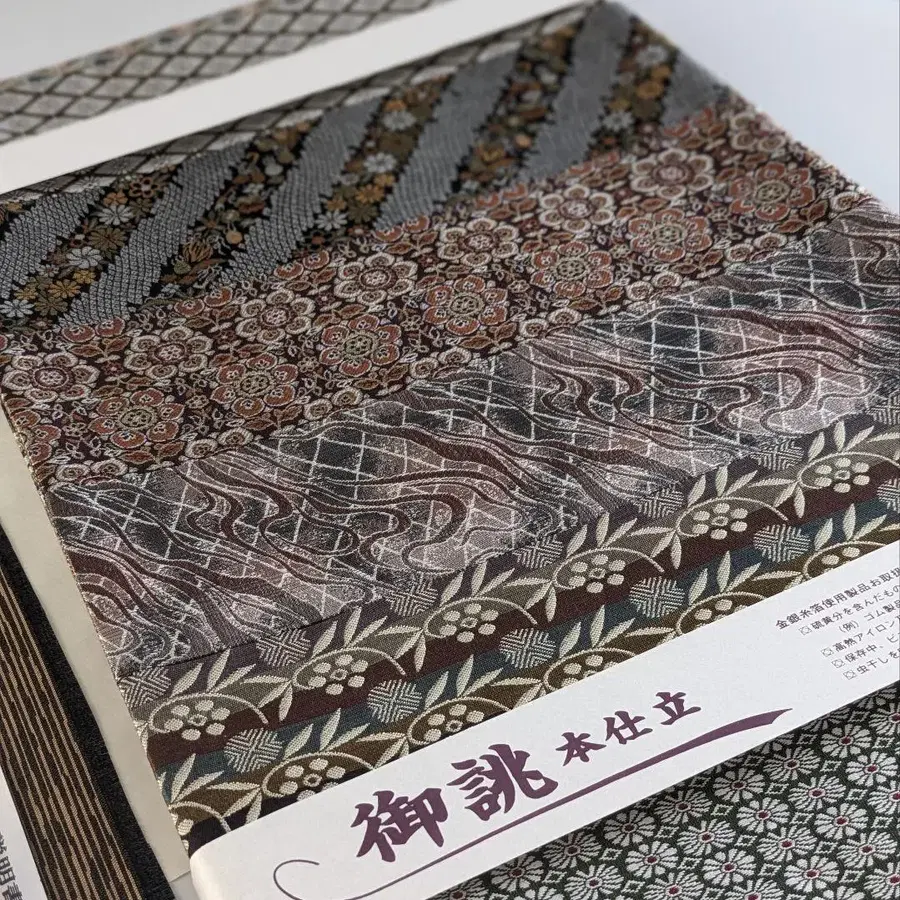 金銀糸箔使用製品お取扱
☒硫黄分を含んだもの
(例)ゴム製品
☒高熱アイロン
☒保存中、ビ
☒虫干しを
御誂 本仕立